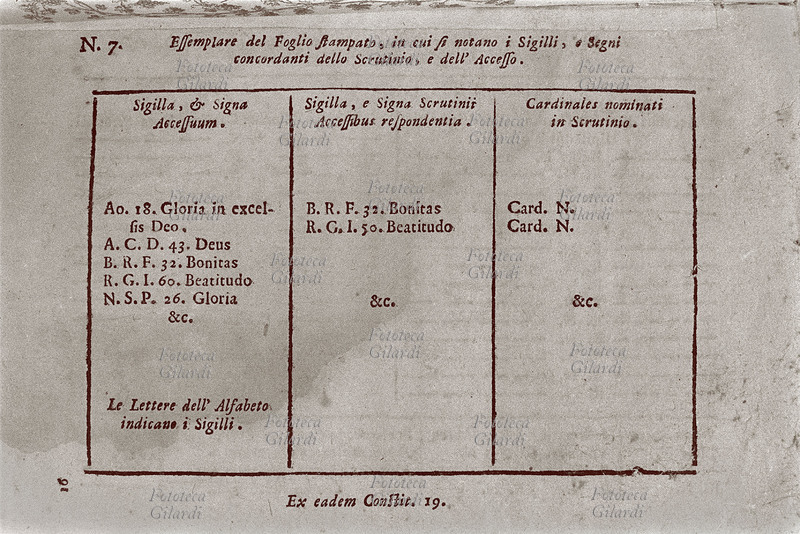 N. 7.
Eſſemplare del Foglio ſtampato, in cui ſi notano i Sigilli, e Segni
concordanti dello Scrutinio, e dell' Acceſſo.
Sigilla, & Signa
Acceſſuum.
Ao. 18. Gloria in excel-
ſis Deo.
A. C. D. 43. Deus
B. R. F. 32. Bonitas
R. G. I. 60. Beatitudo
N. S. P. 26. Gloria
&c.
Le Lettere dell' Alfabeto
indicano i Sigilli.
Sigilla, e Signa Scrutinii
Acceſſibus reſpondentia.
B. R. F. 32. Bonitas
R. G. I. 50. Beatitudo
&c.
Cardinales nominati
in Scrutinio.
Card. N.
Card. N.
&c.
16
Ex eadem Conſtit. 19.
Fototeca
Gilardi